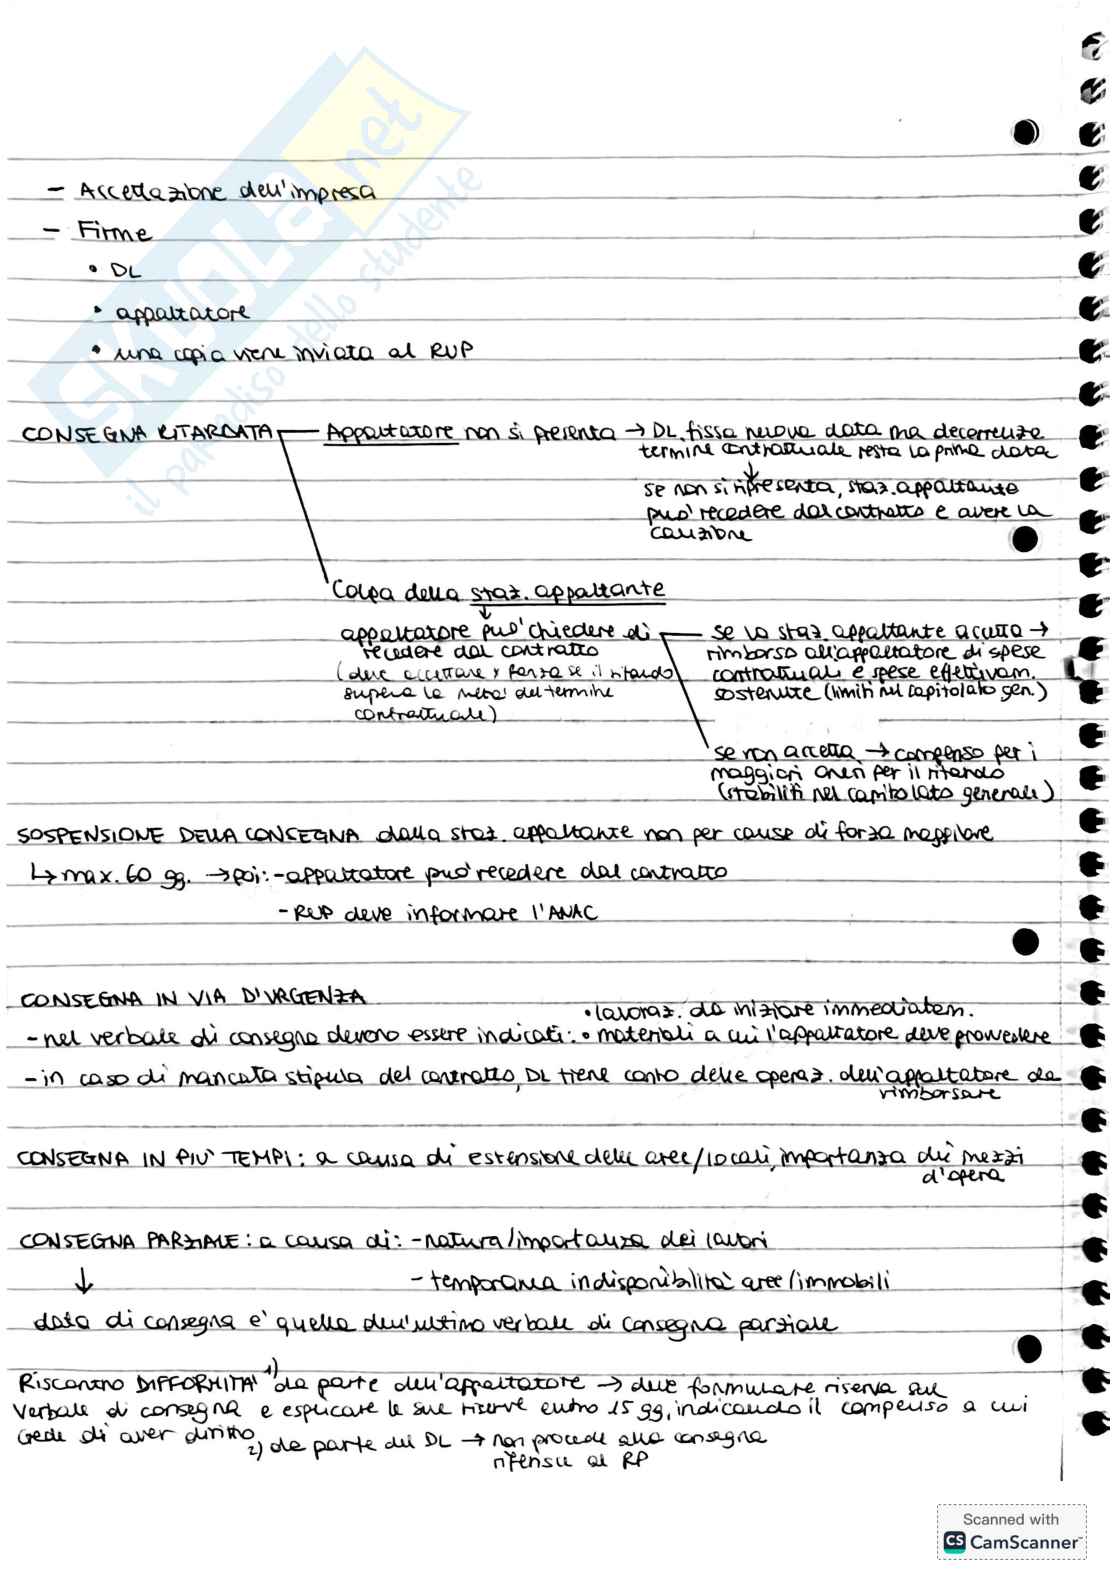 - Accettazione dell'impresa
- Firme
• DL
• appaltatore
• una copia viene inviata al RUP
CONSEGNA RITARDATA
Appaltatore non si presenta → DL fissa nuova data ma decorrenza
termine contrattuale resta la prima data
↓
se non si ripresenta, staz. appaltante
può recedere dal contratto e avere la
cauzione
Colpa della staz. appaltante
↓
appaltatore può chiedere di
recedere dal contratto
(deve accettare x forza se il ritardo
supera la metà del termine
contrattuale)
se la staz. appaltante accetta →
rimborso all'appaltatore di spese
contrattuali e spese effettivam.
sostenute (limiti nel capitolato gen.)
se non accetta → compenso per i
maggiori oneri per il ritardo
(stabiliti nel capitolato generale)
SOSPENSIONE DELLA CONSEGNA dalla staz. appaltante non per cause di forza maggiore
↳ max. 60 gg. → poi: - appaltatore può recedere dal contratto
- RUP deve informare l'ANAC
CONSEGNA IN VIA D'URGENZA
• lavoraz. da iniziare immediatem.
- nel verbale di consegna devono essere indicati: • materiali a cui l'appaltatore deve provvedere
- in caso di mancata stipula del contratto, DL tiene conto delle operaz. dell'appaltatore da
rimborsare
CONSEGNA IN PIU' TEMPI: a causa di estensione delle aree/locali, importanza dei mezzi
d'opera
CONSEGNA PARZIALE: a causa di: - natura/importanza dei lavori
↓ - temporanea indisponibilità aree/immobili
data di consegna e' quella dell'ultimo verbale di consegna parziale
Riscontro DIFFORMITA' 1) da parte dell'appaltatore → deve formulare riserva sul
verbale di consegna e esplicare le sue riserve entro 15 gg, indicando il compenso a cui
crede di aver diritto
2) da parte del DL → non procede alla consegna
riferisce al RP
SKUOLA.net
il paradiso dello studente
Scanned with
CS CamScanner